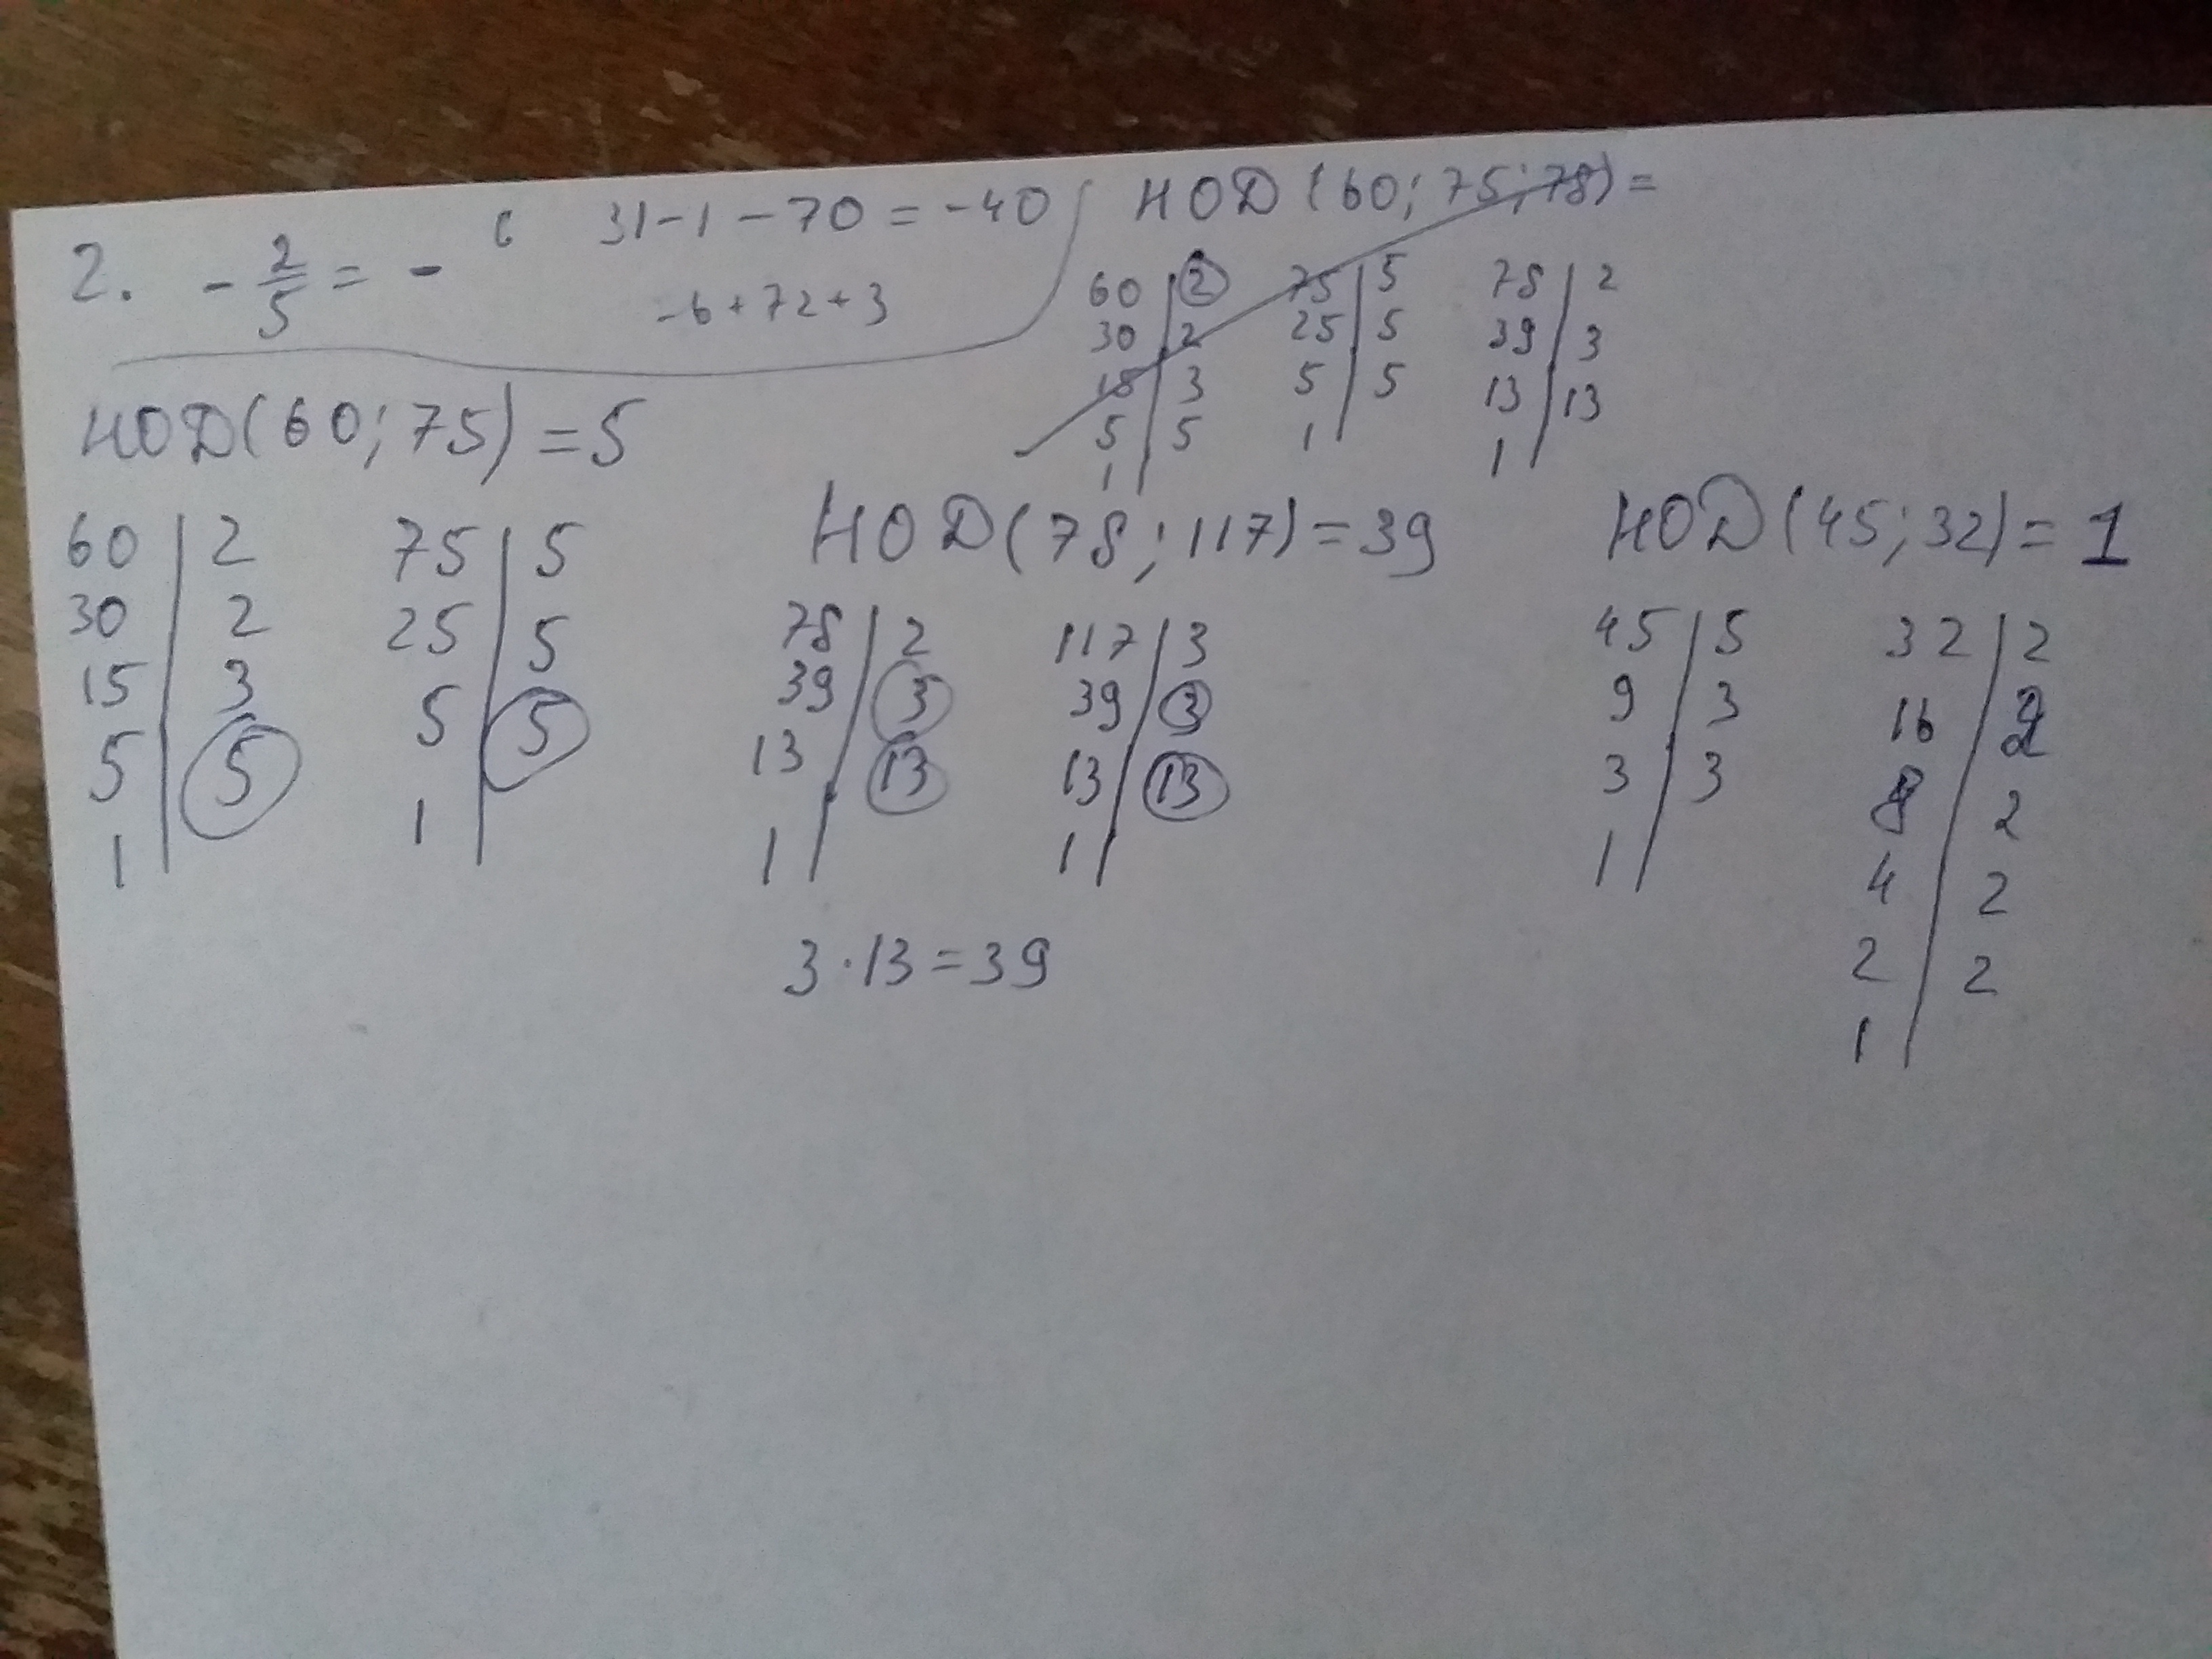 2. - 2/5 = - 6 31-1-70=-40
-6+72+3
НОD(60;75;78)=
60|2 75|5 78|2
30|2 25|5 39|3
15|3 5|5 13|13
5|5 1| 1|
1|
НОD(60;75)=5
60|2 75|5
30|2 25|5
15|3 5|5
5|5 1|
1|
НОD(78;117)=39
78|2 117|3
39|3 39|3
13|13 13|13
1| 1|
3·13=39
НОD(45;32)=1
45|5 32|2
9|3 16|2
3|3 8|2
1| 4|2
2|2
1|